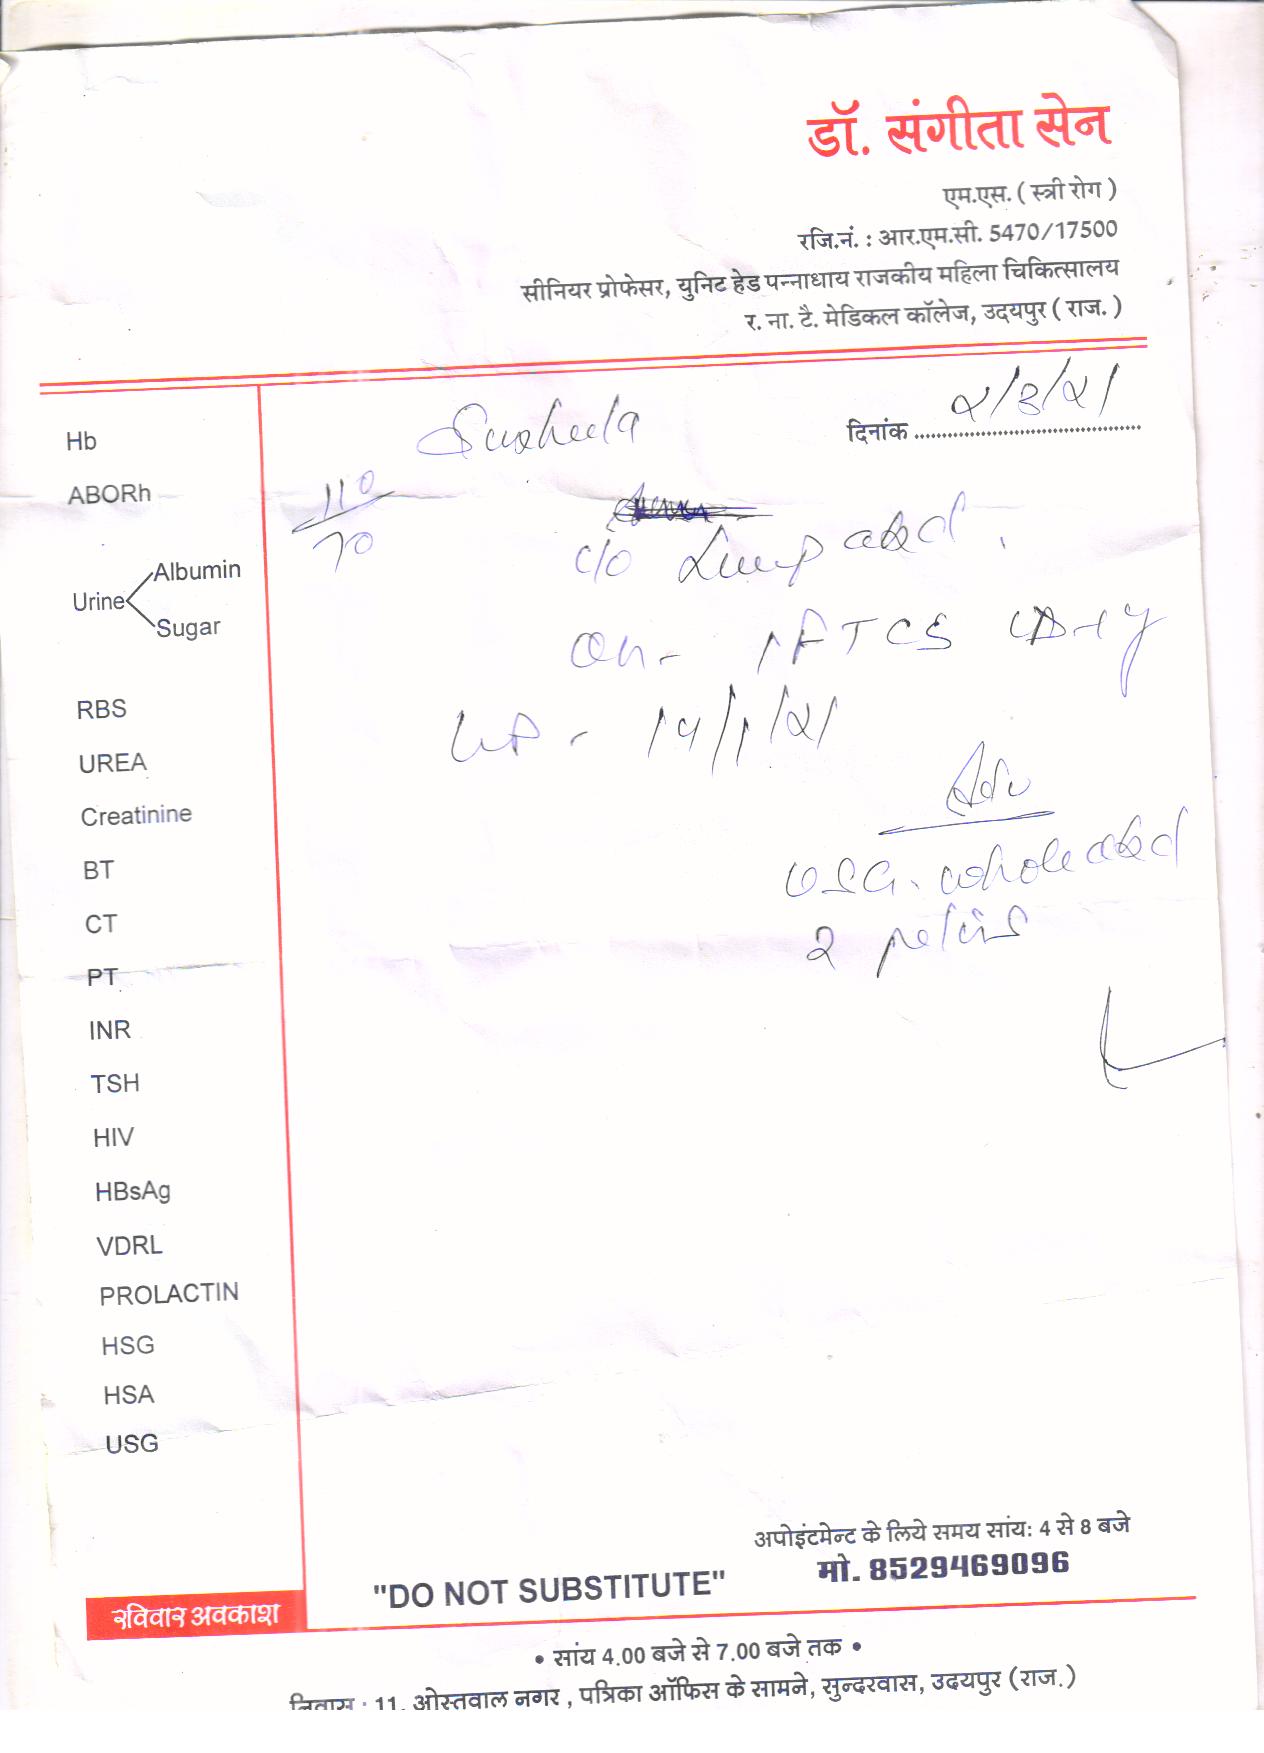 डॉ. संगीता सेन
एम.एस. ( स्त्री रोग )
रजि.नं. : आर.एम.सी. 5470/17500
सीनियर प्रोफेसर, युनिट हेड पन्नाधाय राजकीय महिला चिकित्सालय
र. ना. टै. मेडिकल कॉलेज, उदयपुर ( राज. )
दिनांक 2/3/21
Susheela
110/70
c/o Lump abd.
OH- 1 FTCS
LMP - 14/1/21
Adv
USG. whole abd
2 pelvis
Hb
ABORh
Urine
Albumin
Sugar
RBS
UREA
Creatinine
BT
CT
PT
INR
TSH
HIV
HBsAg
VDRL
PROLACTIN
HSG
HSA
USG
अपोइंटमेन्ट के लिये समय सांय: 4 से 8 बजे
मो. 8529469096
"DO NOT SUBSTITUTE"
रविवार अवकाश
• सांय 4.00 बजे से 7.00 बजे तक •
निवास : 11, ओस्तवाल नगर , पत्रिका ऑफिस के सामने, सुन्दरवास, उदयपुर (राज.)